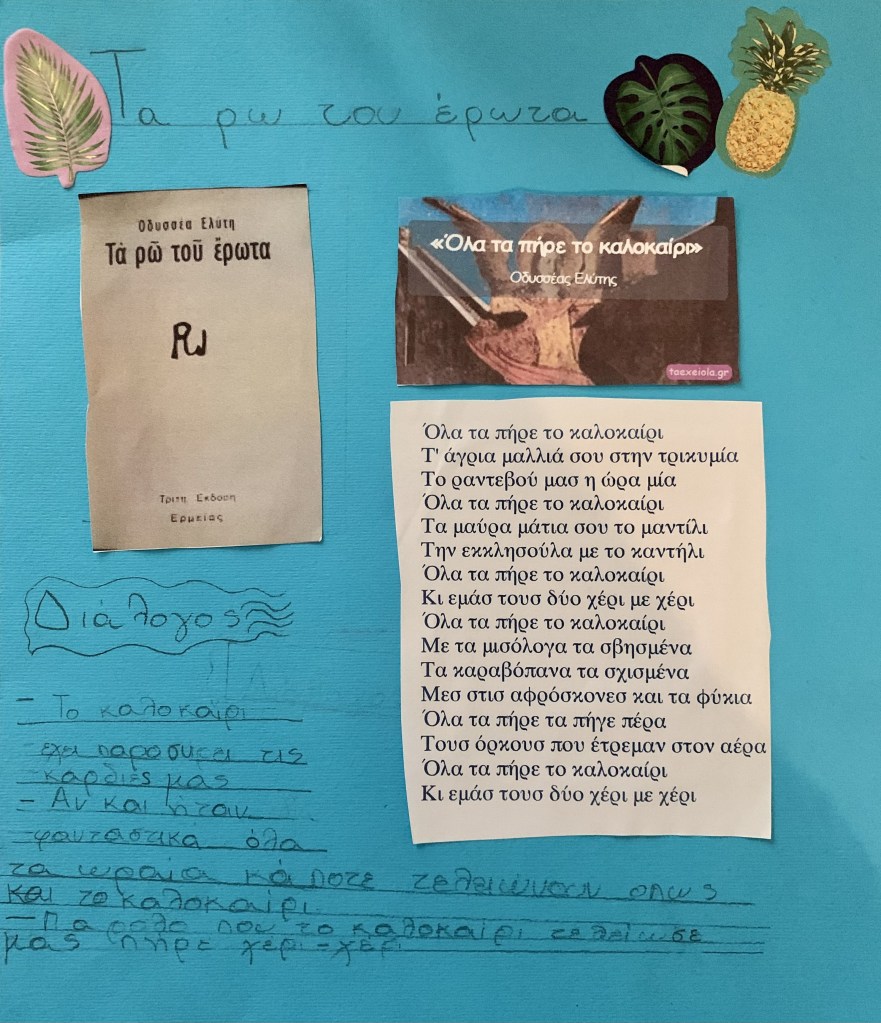 Τα ρω του έρωτα
Οδυσσέα Ελύτη
Τὰ ρῶ τοῦ ἔρωτα
Τρίτη Έκδοση
Ερμείας
«Όλα τα πήρε το καλοκαίρι»
Οδυσσέας Ελύτης
taexeiola.gr
Όλα τα πήρε το καλοκαίρι
Τ' άγρια μαλλιά σου στην τρικυμία
Το ραντεβού μασ η ώρα μία
Όλα τα πήρε το καλοκαίρι
Τα μαύρα μάτια σου το μαντίλι
Την εκκλησούλα με το καντήλι
Όλα τα πήρε το καλοκαίρι
Κι εμάσ τουσ δύο χέρι με χέρι
Όλα τα πήρε το καλοκαίρι
Με τα μισόλογα τα σβησμένα
Τα καραβόπανα τα σχισμένα
Μεσ στισ αφρόσκονεσ και τα φύκια
Όλα τα πήρε τα πήγε πέρα
Τουσ όρκουσ που έτρεμαν στον αέρα
Όλα τα πήρε το καλοκαίρι
Κι εμάσ τουσ δύο χέρι με χέρι
Διάλογος
- Το καλοκαίρι
έχει παρασύρει τις
καρδιές μας
- Αν και ήταν
φανταστικά όλα
τα ωραία κάποτε τελειώνουν όπως
και το καλοκαίρι.
- Παρόλο που το καλοκαίρι τελείωσε
μας πήρε χέρι-χέρι